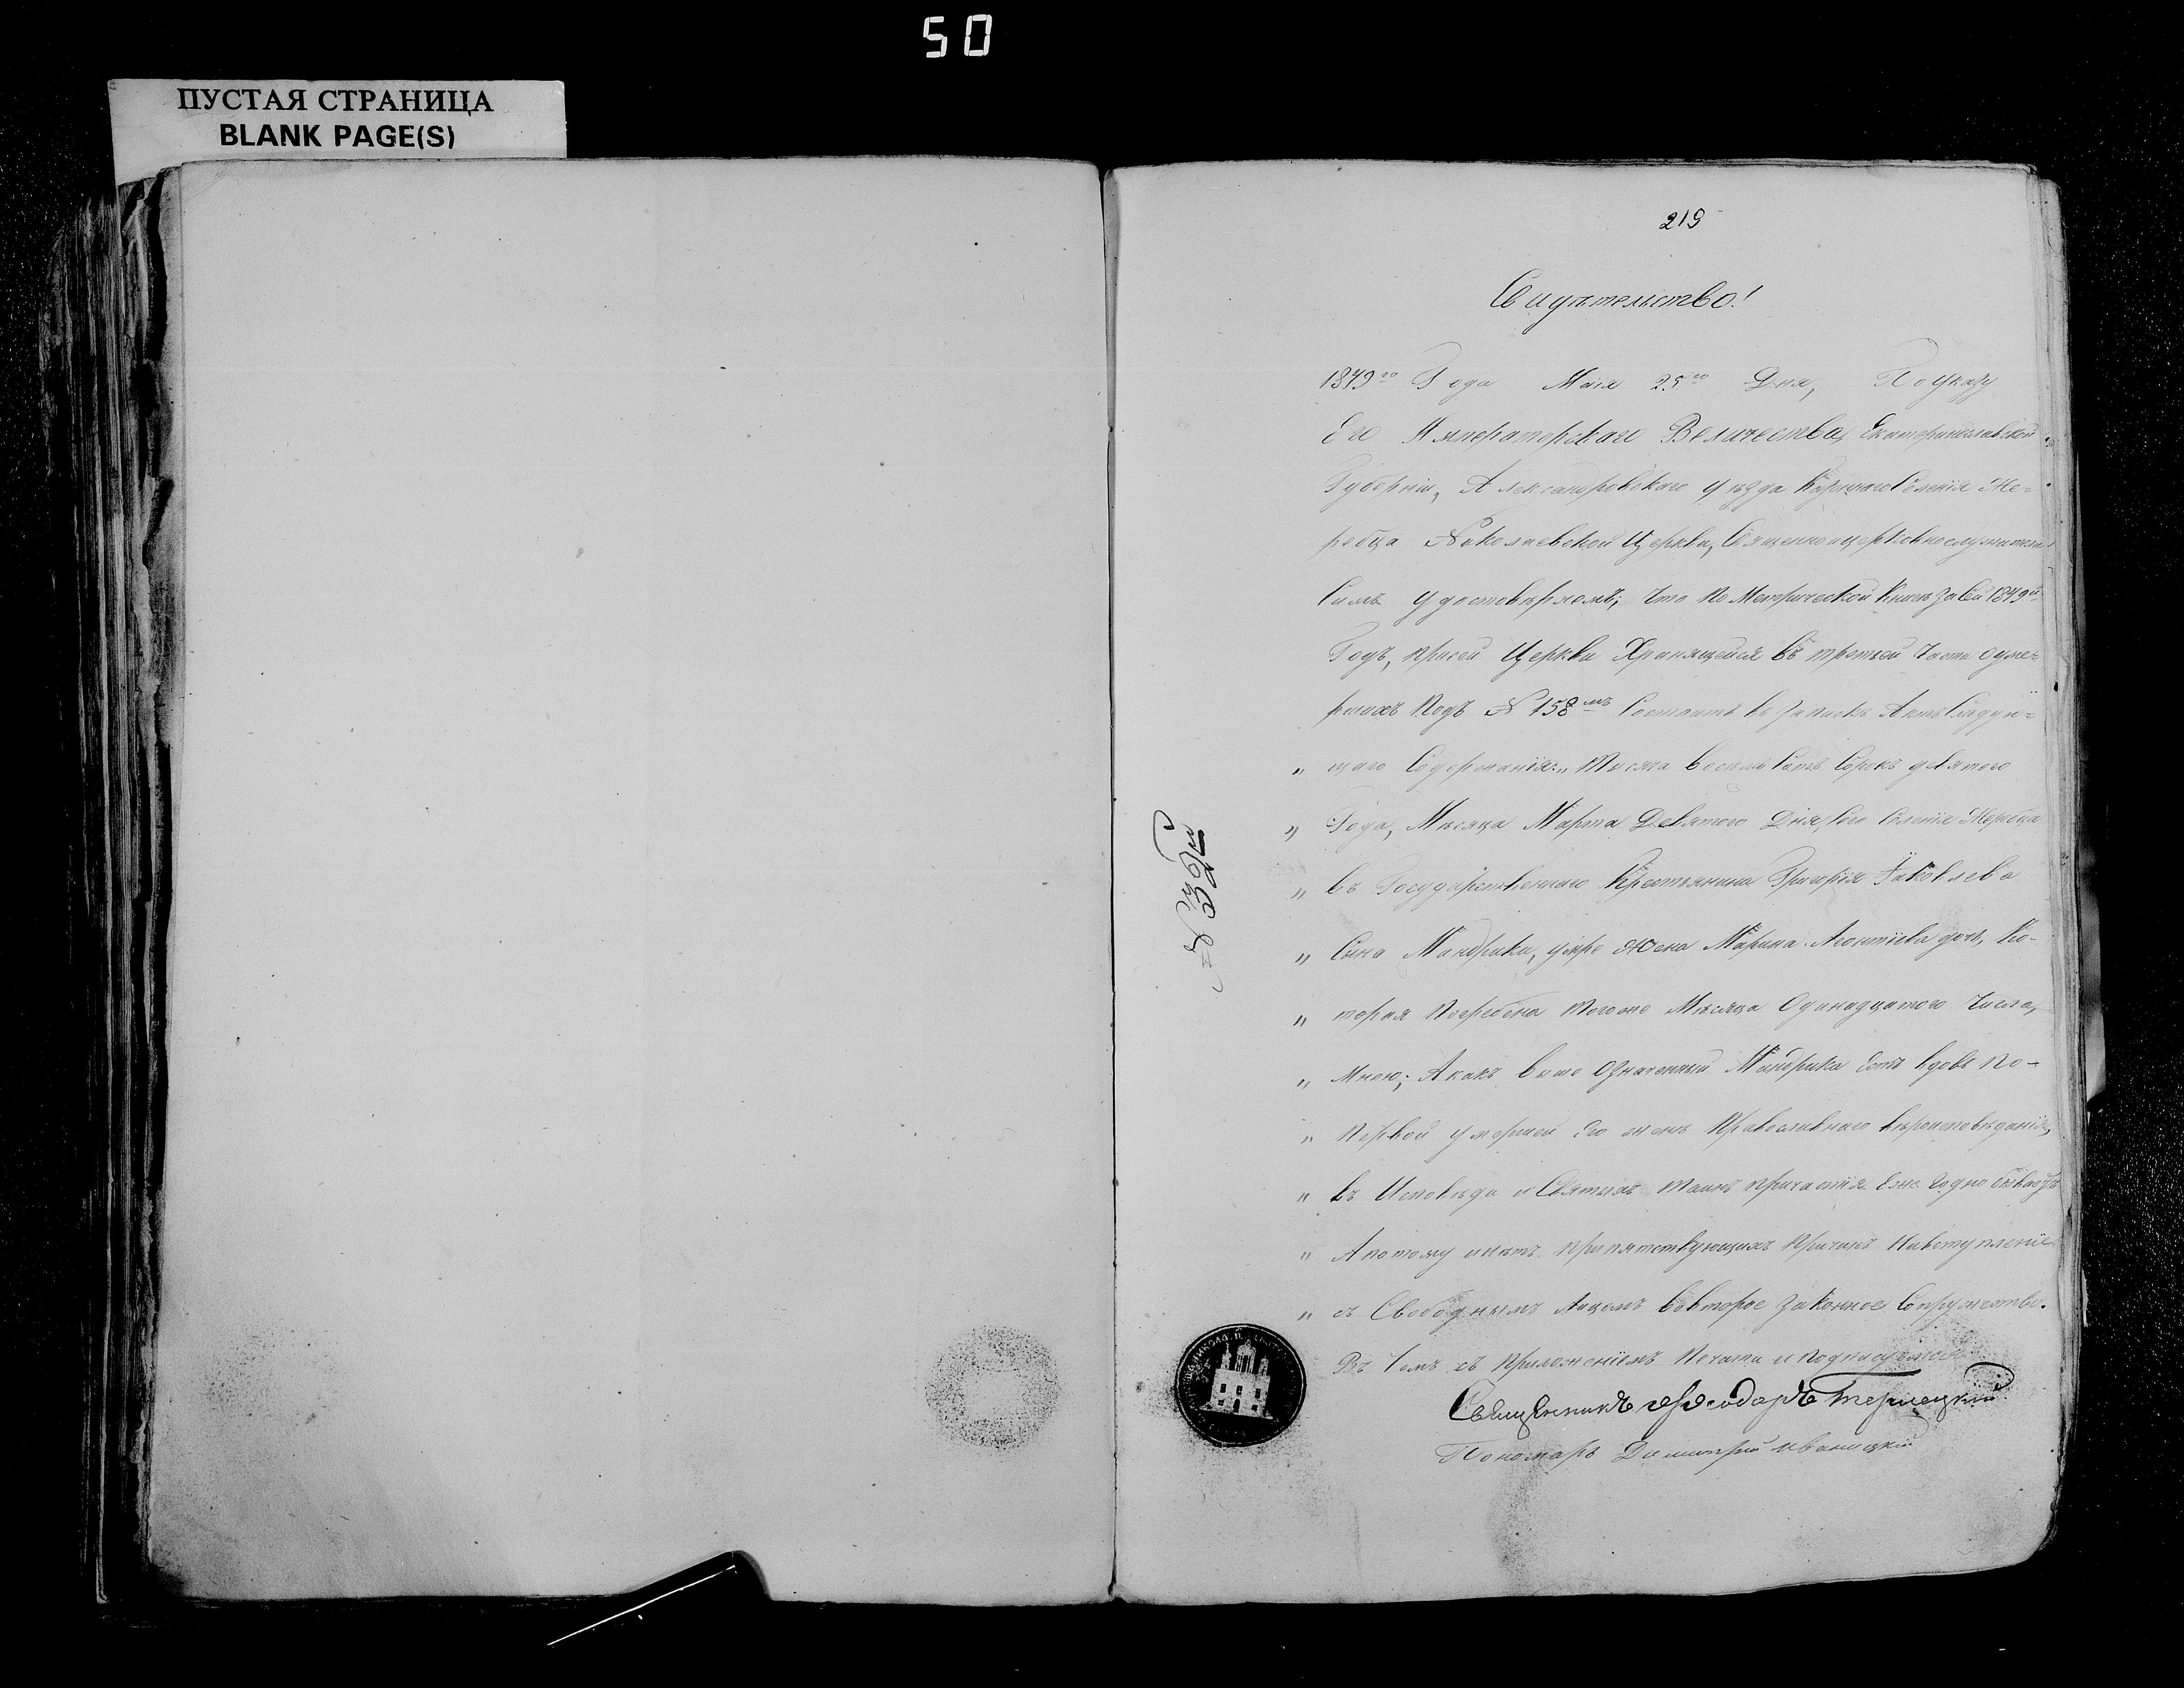 50
ПУСТАЯ СТРАНИЦА
BLANK PAGE(S)
219
Свидѣтельство!
1849го Года Маія 25го Дня, По указу
Его Императорскаго Величества, Екатеринославской
Губерніи, Александровскаго уѣзда Казенаго Селенія Же-
ребца Николаевской Церкви, Священноцерковнослужители
Симъ удостовѣряемъ; Что по Метрической Книгѣ за Сей 1849й
Годъ, присей Церкви Хранящейся въ третьей Части оуме-
ршихъ подъ № 158мъ Состоитъ въ записѣ Актъ Слѣдую-
„ щаго Содержанія: „Тысяча восемь Сотъ Сорокъ девятого
„ Года, Мѣсяца Марта Девятого Дня, Сего Селенія Жеребца
„ въ Государственнаго Крестьянина Григорія Яковлева
„ Сына Мандрика, умре жена Марина Леонтіева дочь, Ко-
„ торая погребена тогоже Мѣсяца Одинадцатого Числа,
„ Мною; А какъ выше Означенный Мандрика Есть вдовъ по-
„ первой умершей Его женѣ Православнаго вѣроисповѣданія,
„ въ Исповѣди и Святыхъ таинъ причастія Еже Годно бываетъ
„ А потому инѣтъ препятствующихъ Причинъ Навступленіе
„ съ Свободнымъ Лицомъ вовторое законное Супружество.
Въ Чемъ съ приложеніемъ Печати и подписуемся
Священникъ Феодоръ Терлецкій
Пономарь Димитрій Иваницкій
№ 32й